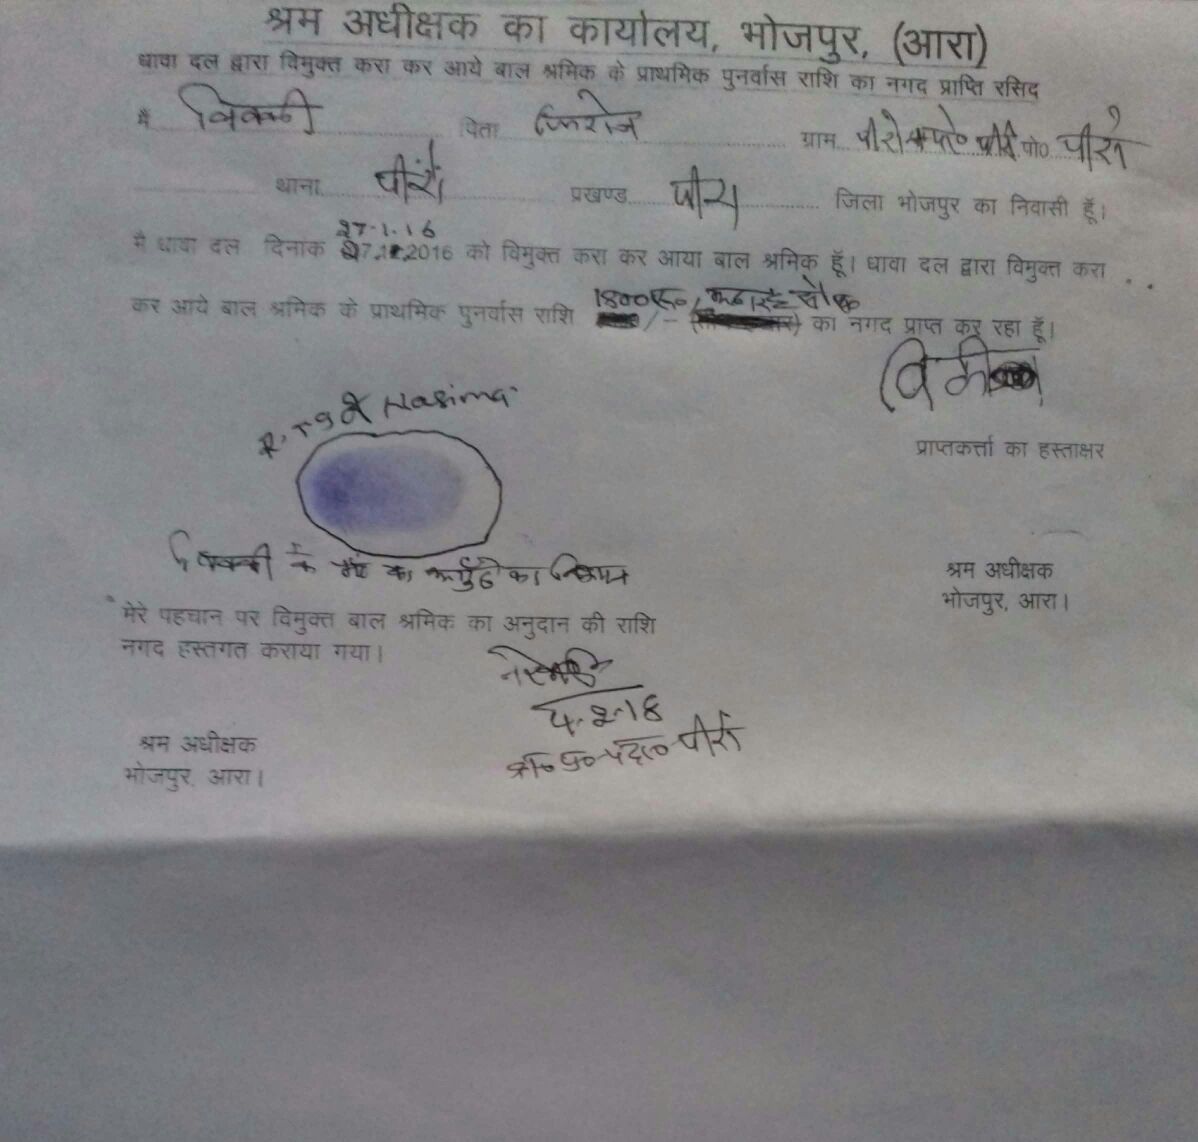 श्रम अधीक्षक का कार्यालय, भोजपुर, (आरा)
धावा दल द्वारा विमुक्त करा कर आये बाल श्रमिक के प्राथमिक पुनर्वास राशि का नगद प्राप्ति रसिद
मै विक्की पिता फिरोज ग्राम पीरो पो० पीरो
थाना पीरो प्रखण्ड पीरो जिला भोजपुर का निवासी हूँ।
27.1.16
मै धावा दल दिनांक 2016 को विमुक्त करा कर आया बाल श्रमिक हूँ। धावा दल द्वारा विमुक्त करा
1800रू०
कर आये बाल श्रमिक के प्राथमिक पुनर्वास राशि /- का नगद प्राप्त कर रहा हूँ।
प्राप्तकर्त्ता का हस्ताक्षर
Hasima
विक्की के माँ का अंगुठे का निशान
श्रम अधीक्षक
भोजपुर, आरा।
मेरे पहचान पर विमुक्त बाल श्रमिक का अनुदान की राशि
नगद हस्तगत कराया गया।
पीरो
श्रम अधीक्षक
भोजपुर, आरा।